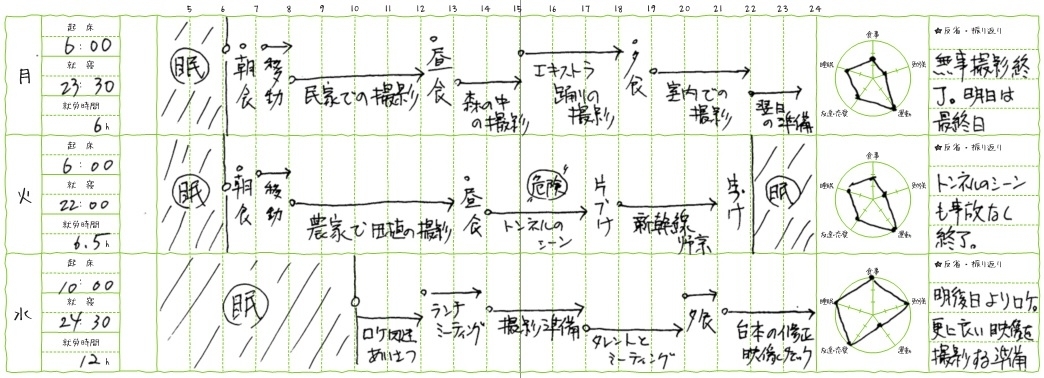 5 6 7 8 9 10 11 12 13 14 15 16 17 18 19 20 21 22 23 24
月
起床
6:00
就寝
23:30
就労時間
6h
眠
朝食
移動
民家での撮影
昼食
森の中の撮影
エキストラ
踊りの撮影
夕食
室内での撮影
翌日の準備
食事
勉強
運動
友達・恋愛
睡眠
★反省・振り返り
無事撮影終
了。明日は
最終日
火
起床
6:00
就寝
22:00
就労時間
6.5h
眠
朝食
移動
農家で田植の撮影
昼食
危険
トンネルの
シーン
片づけ
新幹線
帰京
片づけ
眠
食事
勉強
運動
友達・恋愛
睡眠
★反省・振り返り
トンネルのシーン
も事故なく
終了。
水
起床
10:00
就寝
24:30
就労時間
12h
眠
ロケ関連
あいさつ
ランチ
ミーティング
撮影準備
タレントと
ミーティング
夕食
台本の修正
映像チェック
食事
勉強
運動
友達・恋愛
睡眠
★反省・振り返り
明後日よりロケ。
更に良い映像を
撮影する準備